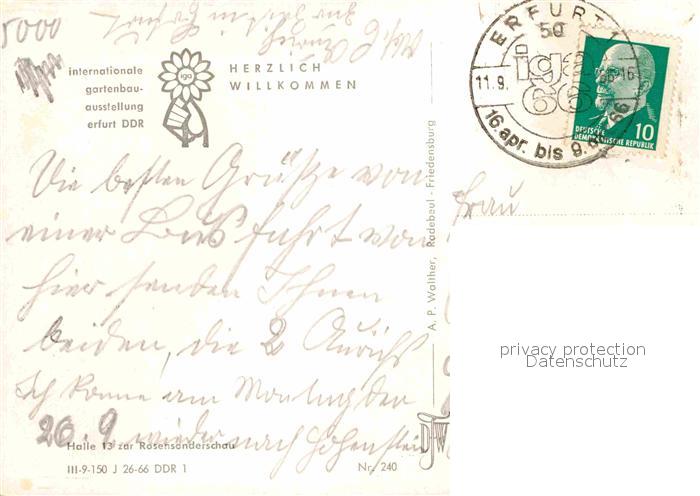 5000
internationale
gartenbau-
ausstellung
erfurt DDR
iga
HERZLICH
WILLKOMMEN
ERFURT 1
50
iga
66
11.9.
-16
16. apr. bis 9. 66
10
DEUTSCHE
DEMOKRATISCHE REPUBLIK
Die besten Grüße von
einer Bus fahrt von
hier senden Ihnen
beiden, die 2
Ich komme am Montag den
26. 9. wieder nach Hohenstein
Frau
A. P. Walther, Radebeul - Friedensburg
privacy protection
Datenschutz
Halle 13 zur Rosensonderschau
III-9-150 J 26-66 DDR 1
Nr. 240